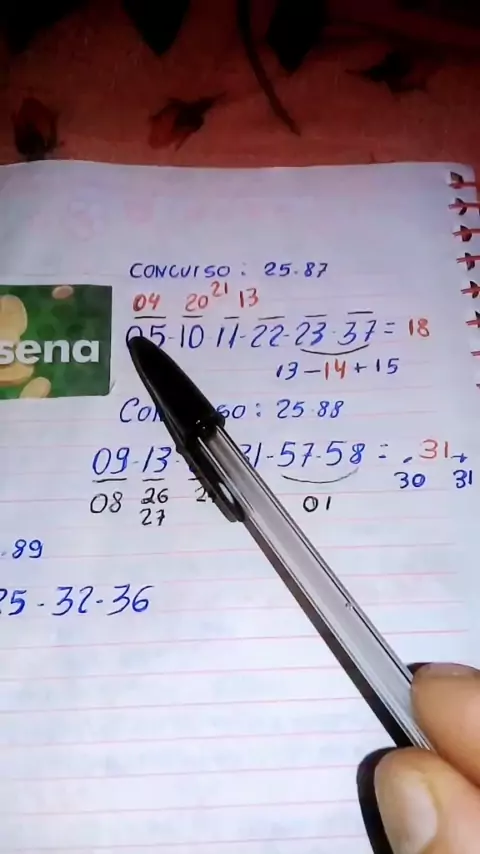 CONCURSO: 25.87
04 20 21 13
05-10 11-22-23-37=18
sena
13-14+15
: 25.88
09-13- 31-57-58 = 31+
08 26 01 30 31
27
.89
25-32-36